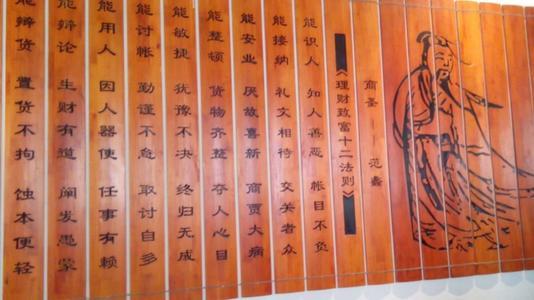 商圣 范蠡
《理财致富十二法则》
能识人 知人善恶 帐目不负
能接纳 礼文相待 交关者众
能安业 厌故喜新 商贾大病
能整顿 货物齐整 夺人心目
能敏捷 犹豫不决 终归无成
能讨帐 勤谨不怠 取讨自多
能用人 因人器使 任事有赖
能辩论 生财有道 阐发愚蒙
能辩货 置货不拘 蚀本便轻